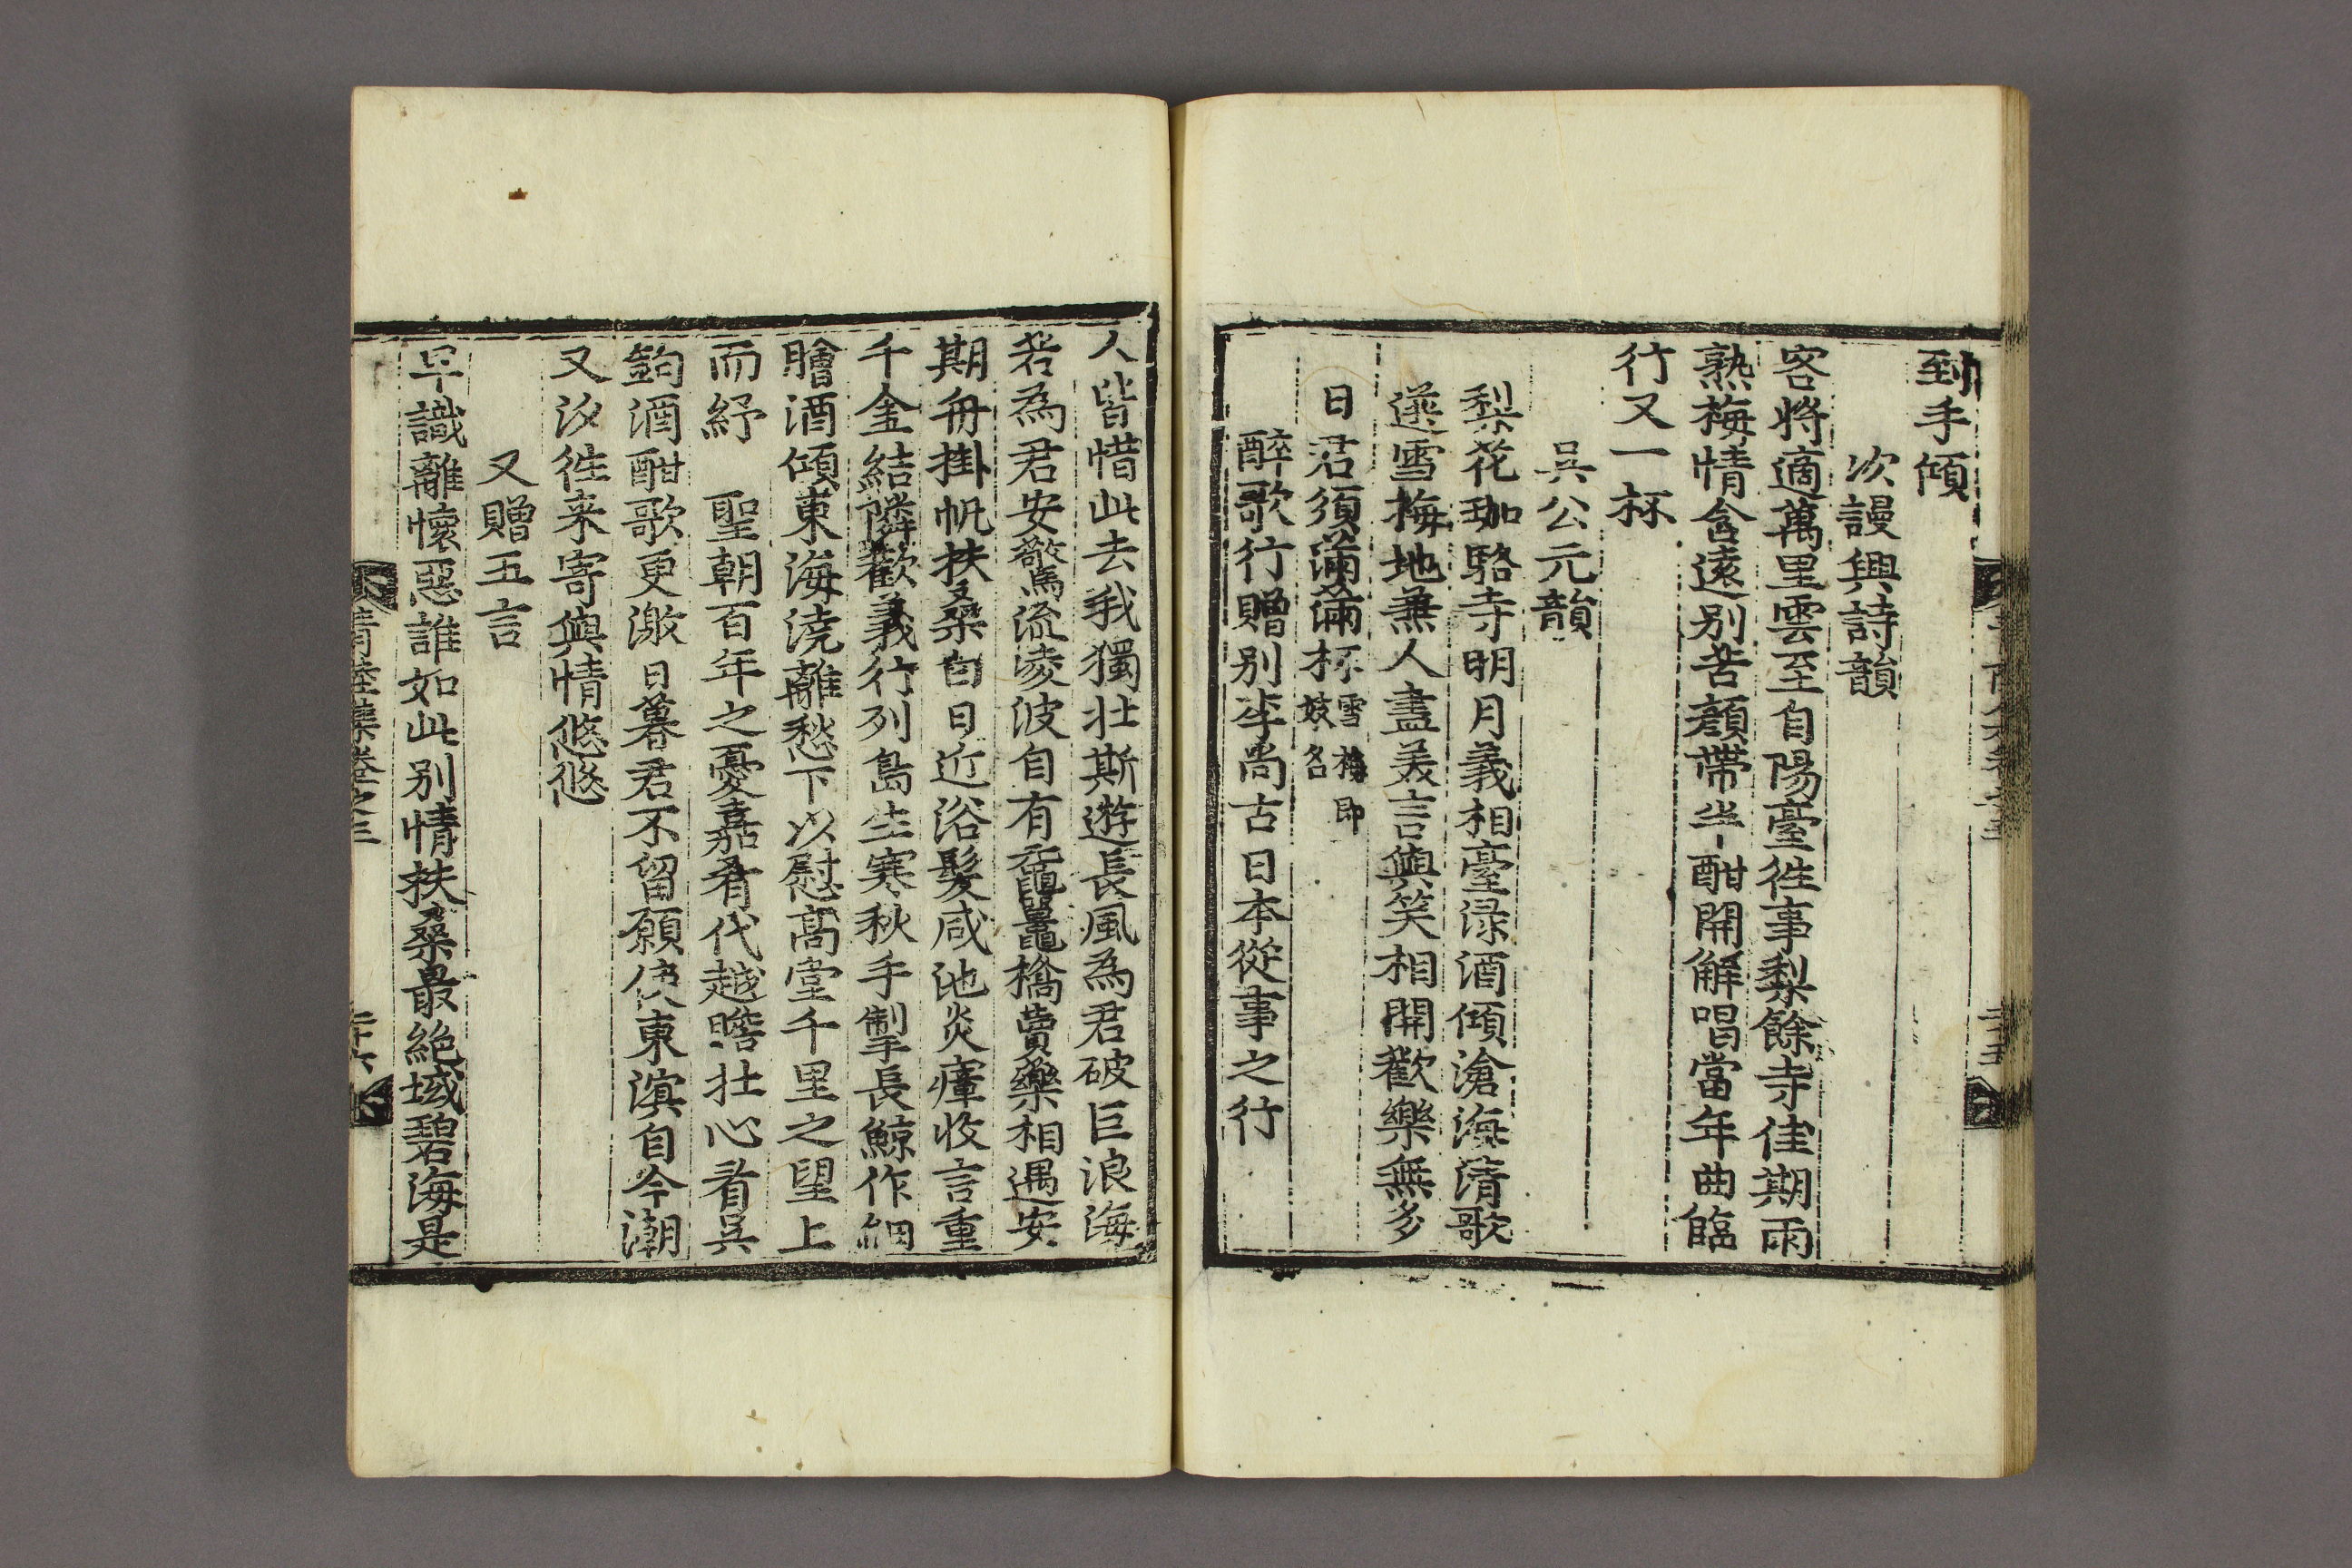 到手傾
次謾興詩韻
客將適萬里雲至自陽臺徃事梨餘寺佳期雨
熟梅情含遠別苦顔帶半酣開解唱當年曲臨
行又一杯
吳公元韻
梨花珈駱寺明月義相臺渌酒傾滄海清歌
送雪梅地兼人盡美言與笑相開歡樂無多
日君須滿滿杯雪梅即
妓名
醉歌行贈別李尚古日本從事之行
人皆惜此去我獨壯斯遊長風為君破巨浪海
若為君安驚流凌波自有黿鼉橋賣藥相遇安
期舟掛帆扶桑白日近浴髮咸池炎瘴收言重
千金結隣歡義行列島生寒秋手掣長鯨作細
膾酒傾東海澆離愁下以慰高堂千里之望上
而紓 聖朝百年之憂嘉肴代越膽壯心看吳
鉤酒酣歌更激日暮君不留願使東溟自今潮
又汐徃来寄與情悠悠
又贈五言
早識離懷惡誰如此別情扶桑最絶域碧海是
集卷之三